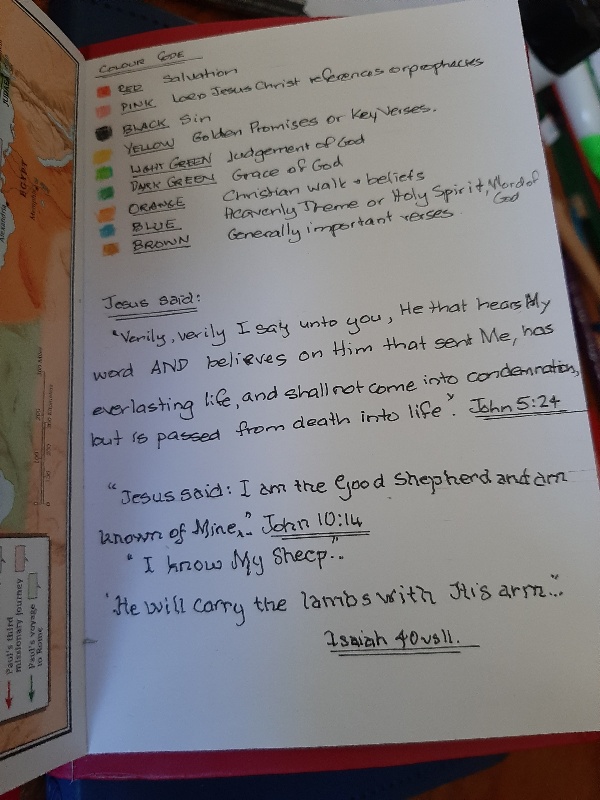 COLOUR CODE
RED Salvation
PINK Lord Jesus Christ references or prophecies
BLACK Sin
YELLOW Golden Promises or Key Verses.
LIGHT GREEN Judgement of God
DARK GREEN Grace of God
ORANGE Christian walk + beliefs
BLUE Heavenly Theme or Holy Spirit, Word of God
BROWN Generally important verses.
Jesus said:
"Verily, verily I say unto you, He that hears My
word AND believes on Him that sent Me, has
everlasting life, and shall not come into condemnation,
but is passed from death into life". John 5:24
"Jesus said: I am the Good Shepherd and am
known of Mine..." John 10:14
"I know My Sheep..."
"He will carry the lambs with His arm..."
Isaiah 40vs11.
EGYPT
Memphis
Alexandria
Paul's third
missionary journey
Paul's voyage
to Rome